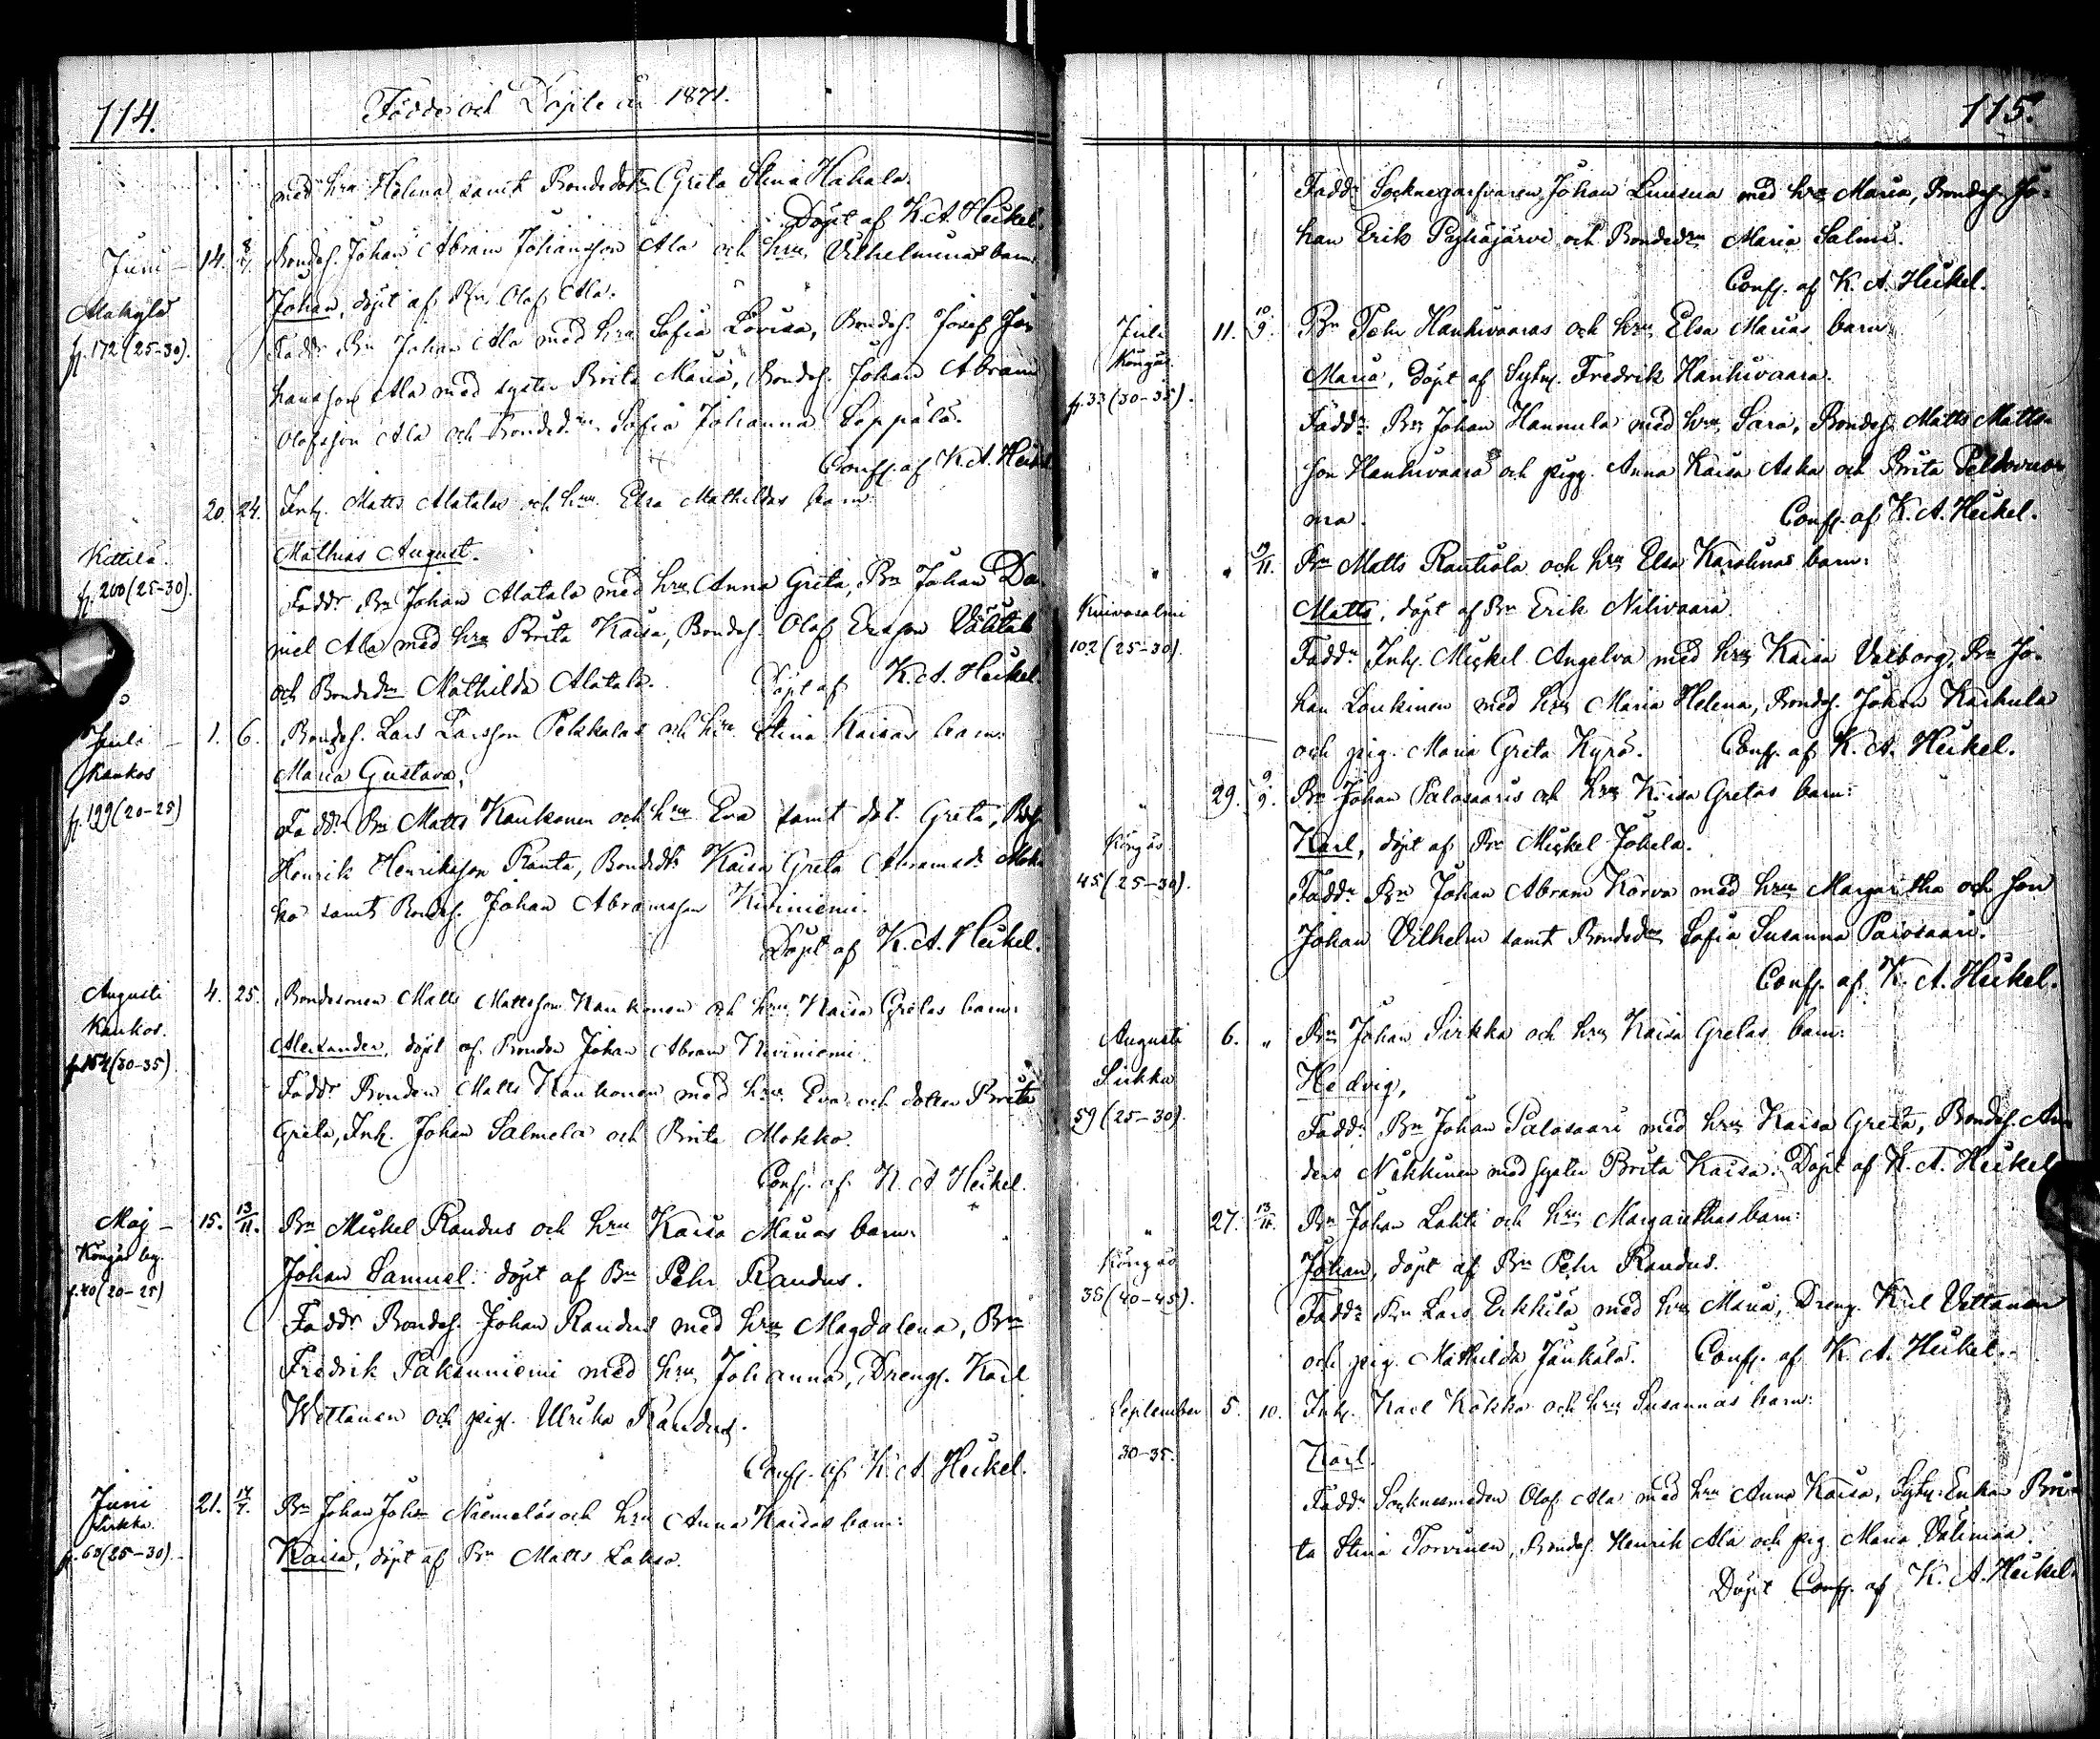 114.
Födde och Döpte år 1871.
med hru Helena samt Bondedotrn Greta Stina Hakala.
Döpt af K. A. Heikel.
Juni 14. 8/7 Bondes. Johan Abram Johansson Ala och hru Vilhelminas barn:
Alakylä
Johan, döpt af Bn Olof Ala.
p. 172 (25-30).
Faddr Bn Johan Ala med hru Sofia Lovisa, Bondes. Josef Jo-
hansson Ala med syster Brita Maria, Bondes. Johan Abram
Olofsson Ala och Bondedn Sofia Johanna Seppälä.
Conf. af K. A. Heikel
20. 24. Inh. Matts Alatalos och hru Elsa Mathildas barn:
Kittilä
Mathias August.
p. 200 (25-30).
Faddr Bn Johan Alatalo med hru Anna Greta, Bn Johan Da-
niel Ala med hru Brita Kaisa, Bondes. Olof Ersson Välitalo
och Bondedn Mathilda Alatalo. Döpt af K. A. Heikel.
Juli 1. 6. Bondes. Lars Larsson Pekkalas och hru Stina Kaisas barn:
Kaukos
Maria Gustava,
p. 199 (20-25)
Faddr Bn Matts Kaukonen och hru Eva samt dot. Greta, Bds
Henrik Henriksson Ranta, Bondedtr Kaisa Greta Abramsdr Mok-
ko samt Bondes. Johan Abramsson Kiviniemi.
Döpt af K. A. Heikel.
Augusti 4. 25. Bondesonen Matts Mattsson Kaukonen och hru Kaisa Gretas barn:
Kaukos.
Alexander, döpt af Bonden Johan Abram Kiviniemi.
p. 154 (30-35)
Faddr Bonden Matts Kaukonen med hru Eva och dotter Brita
Greta, Inh. Johan Salmela och Brita Mokko.
Conf. af K. A. Heikel.
Maj 15. 13/11. Bn Mickel Randus och hru Kaisa Marias barn:
Köngäs by.
Johan Samuel: döpt af Bn Pehr Randus.
p. 40 (20-25)
Faddr Bondes. Johan Randus med hru Magdalena, Bn
Fredrik Pakanniemi med hru Johanna, Dreng. Karl
Wettanen och pig. Ulrika Randus.
Conf. af K. A. Heikel.
Juni 21. 14/7. Bn Johan Johan Niemeläs och hru Anna Kaisas barn:
Sirkka.
Kaisa, döpt af Bn Matts Lakso.
p. 63 (25-30).
115.
Faddr Johan med hru Maria, Bondes. Jo-
han Erik Pyhäjärvi och Bondedn Maria Salmi.
Conf. af K. A. Heikel.
Juli 11. 10/9. Bn Pehr Hanhivaaras och hru Elsa Marias barn:
Köngäs.
Maria, döpt af Sytn. Fredrik Hanhivaara.
p. 33 (30-35).
Faddr Bn Johan Hannula med hru Sara, Bondes. Matts Matts-
son Hanhivaara och pigg. Anna Kaisa Aska och Brita Peldovuo-
ma. Conf. af K. A. Heikel.
" " 19/11. Bn Matts Rautiola och hru Elsa Karolinas barn:
Matts, döpt af Bn Erik Nilivaara
Kuivasalmi
102 (25-30).
Faddr Inh. Mickel Angelva med hru Kaisa Valborg, Bn Jo-
han Loukinen med hru Maria Helena, Bondes. Johan Kaihula
och pig. Maria Greta Kyrö. Conf. af K. A. Heikel.
" 29. 9/9. Bn Johan Palosaaris och hru Kaisa Gretas barn:
Köngäs.
Karl, döpt af Bn Mickel Jokela.
45 (25-30).
Faddr Bn Johan Abram Körvo med hru Margaretha och son
Johan Vilhelm samt Bondedn Sofia Susanna Palosaari.
Conf. af K. A. Heikel.
Augusti 6. " Bn Johan Sirkka och hru Kaisa Gretas barn:
Sirkka
Hedvig,
59 (25-30).
Faddr Bn Johan Palosaari med hru Kaisa Greta, Bondes. An-
ders Nikkinen med syster Brita Kaisa. Döpt af K. A. Heikel
" 27. 13/11. Bn Johan Lahti och hru Margarethas barn:
Köngäs
Johan, döpt af Bn Pehr Randus.
38 (40-45).
Faddr Bn Lars Erkkilä med hru Maria, Dreng. Karl Vettanen
och pig. Mathilda Jänkälä. Conf. af K. A. Heikel.
September 5. 10. Inh. Karl Kokko och hru Susannas barn:
30-35.
Karl.
Faddr Socknesmeden Olof Ala med hru Anna Kaisa, Enkan Bri-
ta Stina Torvinen, Bondes. Henrik Ala och pig. Maria Välimaa.
Döpt Conf. af K. A. Heikel.